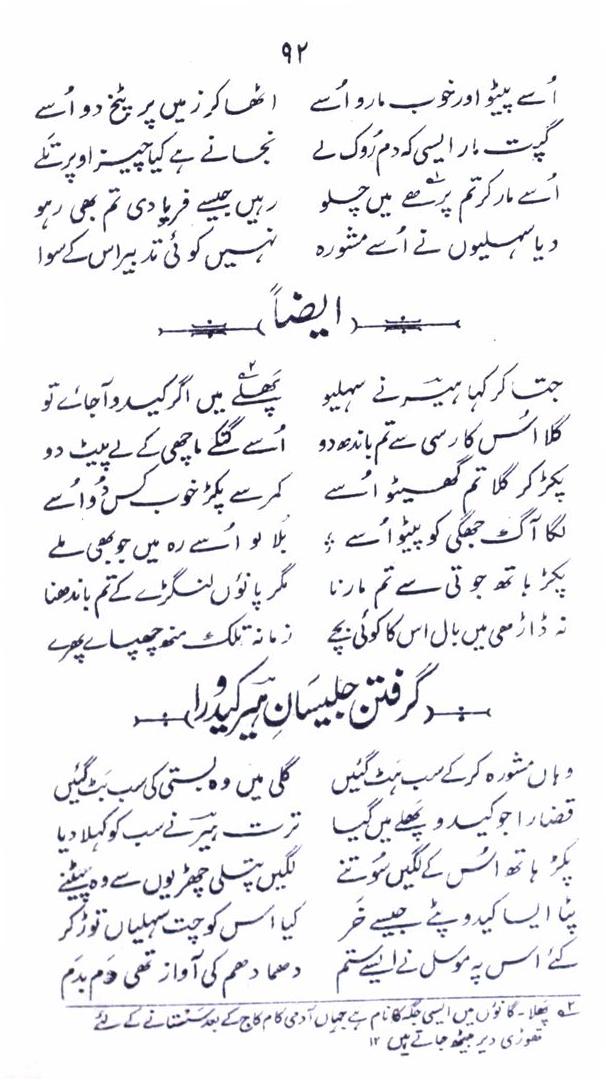 ۹۲
اُسے پیٹو اور خوب مارو اُسے اٹھا کر زمیں پر پٹخ دو اُسے
گپت مار ایسی کہ دم رُوک لے نجانے ہے کیا چیز اوپر تلے
اُسے مار کر تم پرھے میں چلو رہیں جیسے فریادی تم بھی رہو
دیا سہلیوں نے اُسے مشورہ نہیں کوئی تدبیر اس کے سوا
ایضاً
جتا کر کہا ہیر نے سہلیو پَھلے۲ میں اگر کیدو آجائے تو
گلا اُس کا رسی سے تم باندھ دو اُسے گتکے ماچھی کے لے پیٹ دو
پکڑ کر گلا تم گھسیٹو اُسے کمر سے پکڑ خوب کس دو اُسے
لگا آگ جھگی کو پیٹو اُسے بُلا لو اُسے رہ میں جو بھی ملے
پکڑ ہاتھ جوتی سے تم مارنا مگر پانوں لنگڑے کے تم باندھنا
نہ ڈاڑھی میں بال اس کا کوئی بچے زمانہ تلک منھ چھپائے پھرے
گرفتن جلیسانِ ہیر کیدو را
وہاں مشورہ کر کے سب ہٹ گئیں گلی میں وہ بستی کی سب بٹ گئیں
قضارا جو کیدو پَھلے میں گیا ترت ہیر نے سب کو کہلا دیا
پکڑ ہاتھ اُس کے لگیں سُوتنے لگیں پتلی چھڑیوں سے وہ پیٹنے
پٹا ایسا کیدو پٹے جیسے خَر کیا اس کو چت سہلیاں توڑ کر
کئے اس پہ موسل نے ایسے ستم دھما دھم کی آواز تھی دَم بدَم
۲ پَھلا۔ گانوں میں ایسی جگہ کا نام ہے جہاں آدمی کام کاج کے بعد سَستانے کے لئے
تھوڑی دیر بیٹھ جاتے ہیں ۱۲